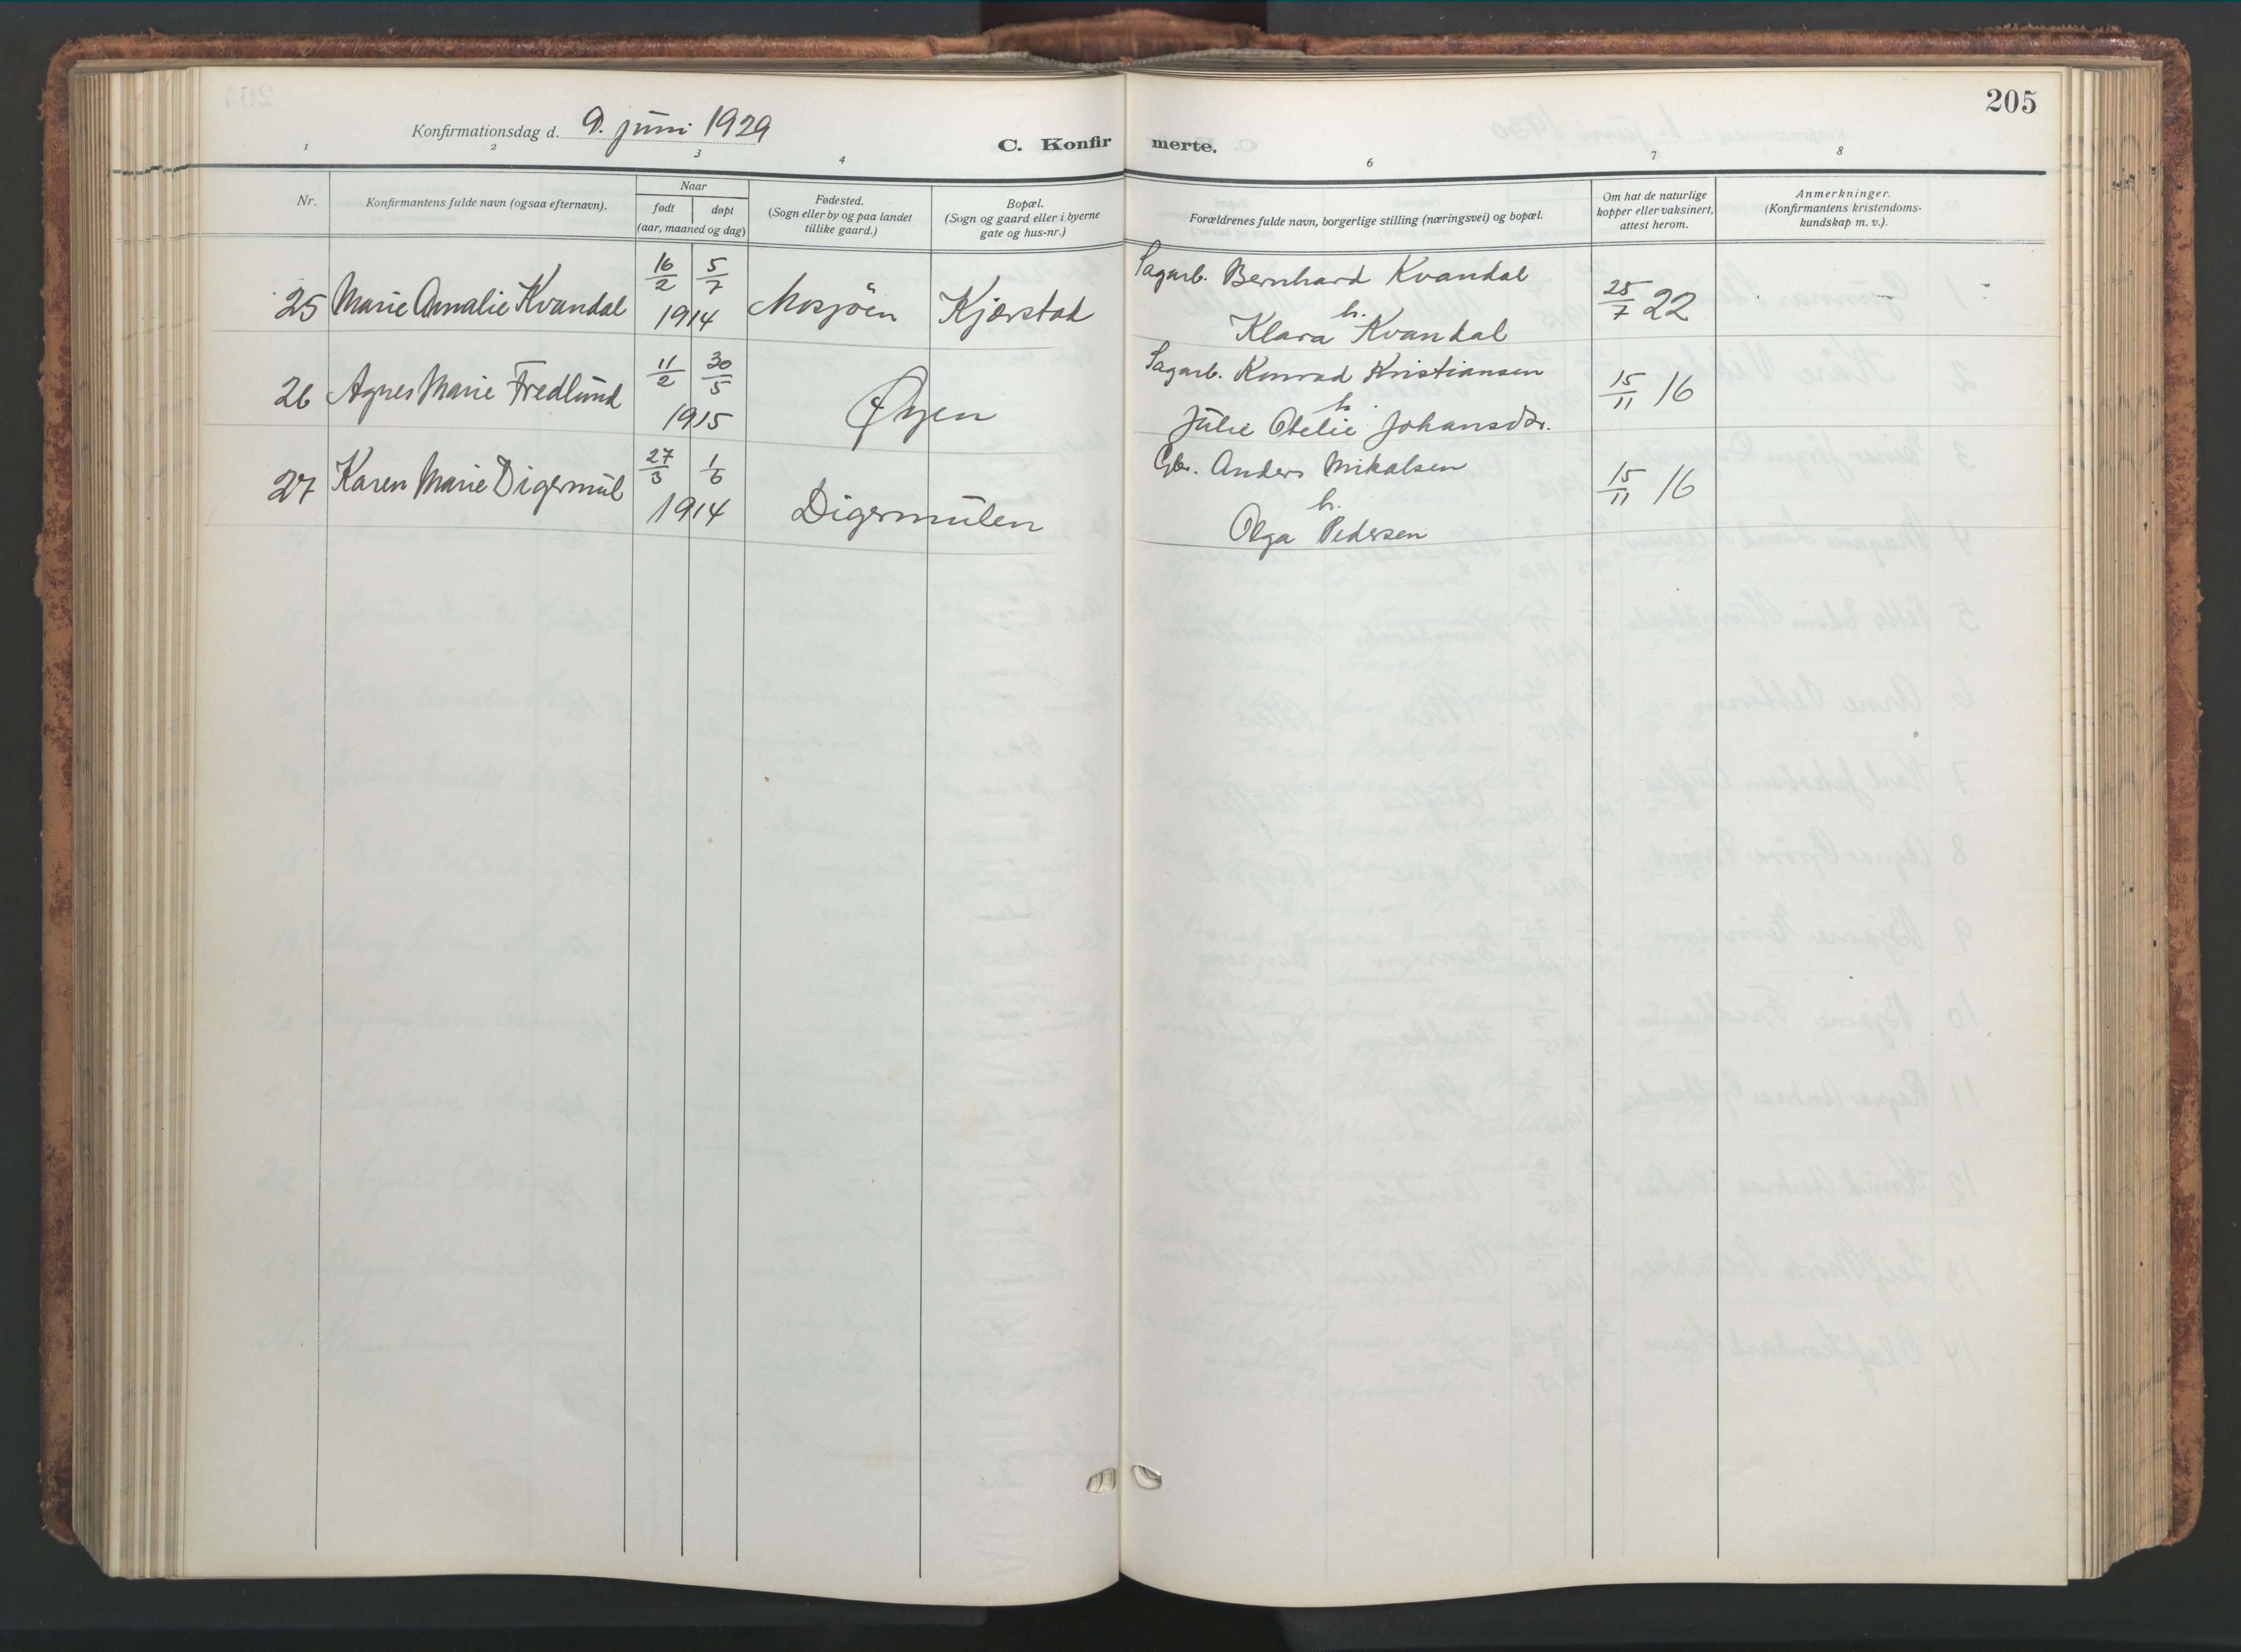 205
Konfirmationsdag d. 9. juni 1929
C. Konfirmerte.
1 2 3 4 6 7 8
Nr.
Konfirmantens fulde navn (ogsaa efternavn).
Naar
født døpt
(aar, maaned og dag)
Fødested.
(Sogn eller by og paa landet
tillike gaard.)
Bopæl.
(Sogn og gaard eller i byerne
gate og hus-nr.)
Forældrenes fulde navn, borgerlige stilling (næringsvei) og bopæl.
Om hat de naturlige
kopper eller vaksinert,
attest herom.
Anmerkninger.
(Konfirmantens kristendoms-
kundskap m. v.).
25 Marie Amalie Kvandal 16/2 5/7 1914 Mosjöen Kjærstad
Sagarb. Bernhard Kvandal
h.
Klara Kvandal
25/7 22
26 Agnes Marie Fredlund 11/2 30/5 1915 Øyen
Sagarb. Konrad Kristiansen
h.
Julie Otelie Johansdtr.
15/11 16
27 Karen Marie Digermul 27/3 1/6 1914 Digermulen
Gbr. Anders Mikalsen
h.
Olga Pedersen
15/11 16